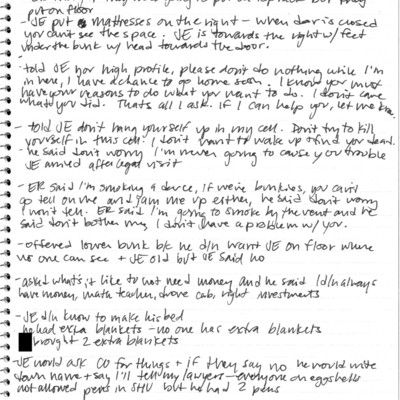 put on floor
- JE put mattresses on the right - when door is closed
you can't see the space. JE is towards the right w/ feet
under the bunk w/ head towards the door.
told JE hov high profile, please don't do nothing while I'm
in here, I have a chance to go home soon. I know you must
have your reasons to do what you want to do. I don't care
what you did. Thats all I ask. If I can help you, let me know.
- told JE don't hang yourself up in my cell. Don't try to kill
yourself in this cell. I don't want to wake up + find you dead.
- he said don't worry I'm never going to cause you trouble
JE arrived after legal visit
- ER said I'm smoking a deuce, if we're bunkies, you can't
go tell on me and jam me up either, he said don't worry
I won't tell. ER said I'm going to smoke by the vent and he
said don't bother me, I don't have a problem w/ you.
- offered lower bunk b/c he d/n want JE on floor where
no one can see + JE old but JE said no
- asked what's it like to not need money and he said I d/n always
have money, math teacher, drove cab, right investments
- JE d/n know to make his bed
had extra blankets - no one has extra blankets
brought 2 extra blankets
- JE would ask CO for things + if they say no he would write
down name + say I'll tell my lawyers - everyone on eggshells
not allowed pens in SHU but he had 2 pens